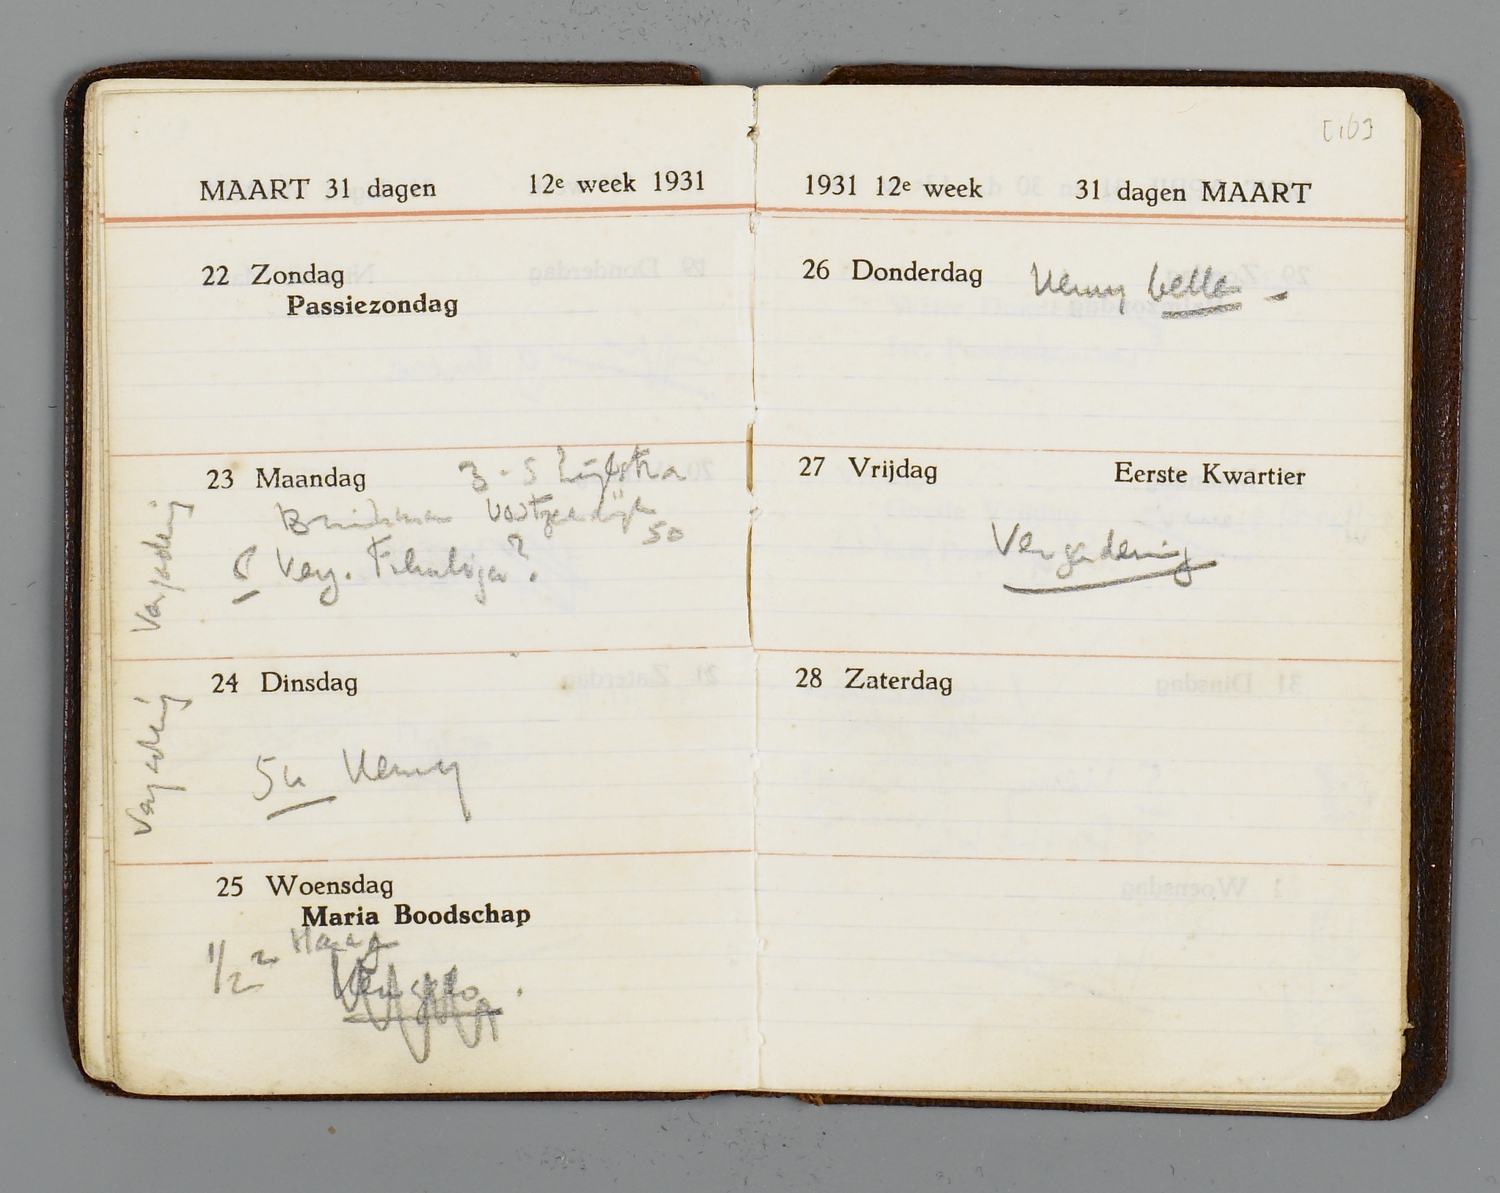 MAART 31 dagen 12e week 1931
22 Zondag
Passiezondag
23 Maandag 3 - 5
50
Verg.
Vergadering
24 Dinsdag
5 u Henny
Vergadering
25 Woensdag
Maria Boodschap
1/2 2 Haag
[16]
1931 12e week 31 dagen MAART
26 Donderdag Henny bellen -
27 Vrijdag Eerste Kwartier
Vergadering
28 Zaterdag